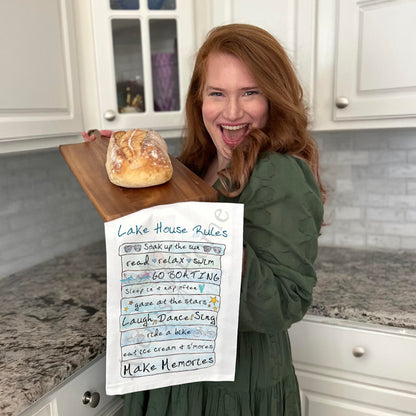 Lake House Rules
Soak up the sun
read relax swim
GO BOATING
Sleep in & nap often
gaze at the stars
Laugh, Dance, Sing
ride a bike
eat ice cream & s'mores
Make Memories